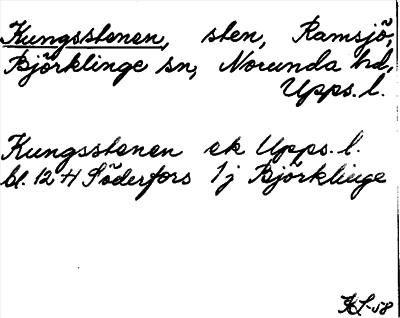 Kungsstenen, sten, Ramsjö,
Björklinge sn, Norunda hd,
Upps. l.
Kungsstenen ek Upps. l.
bl. 12 H Söderfors 1j Björklinge
HS-58